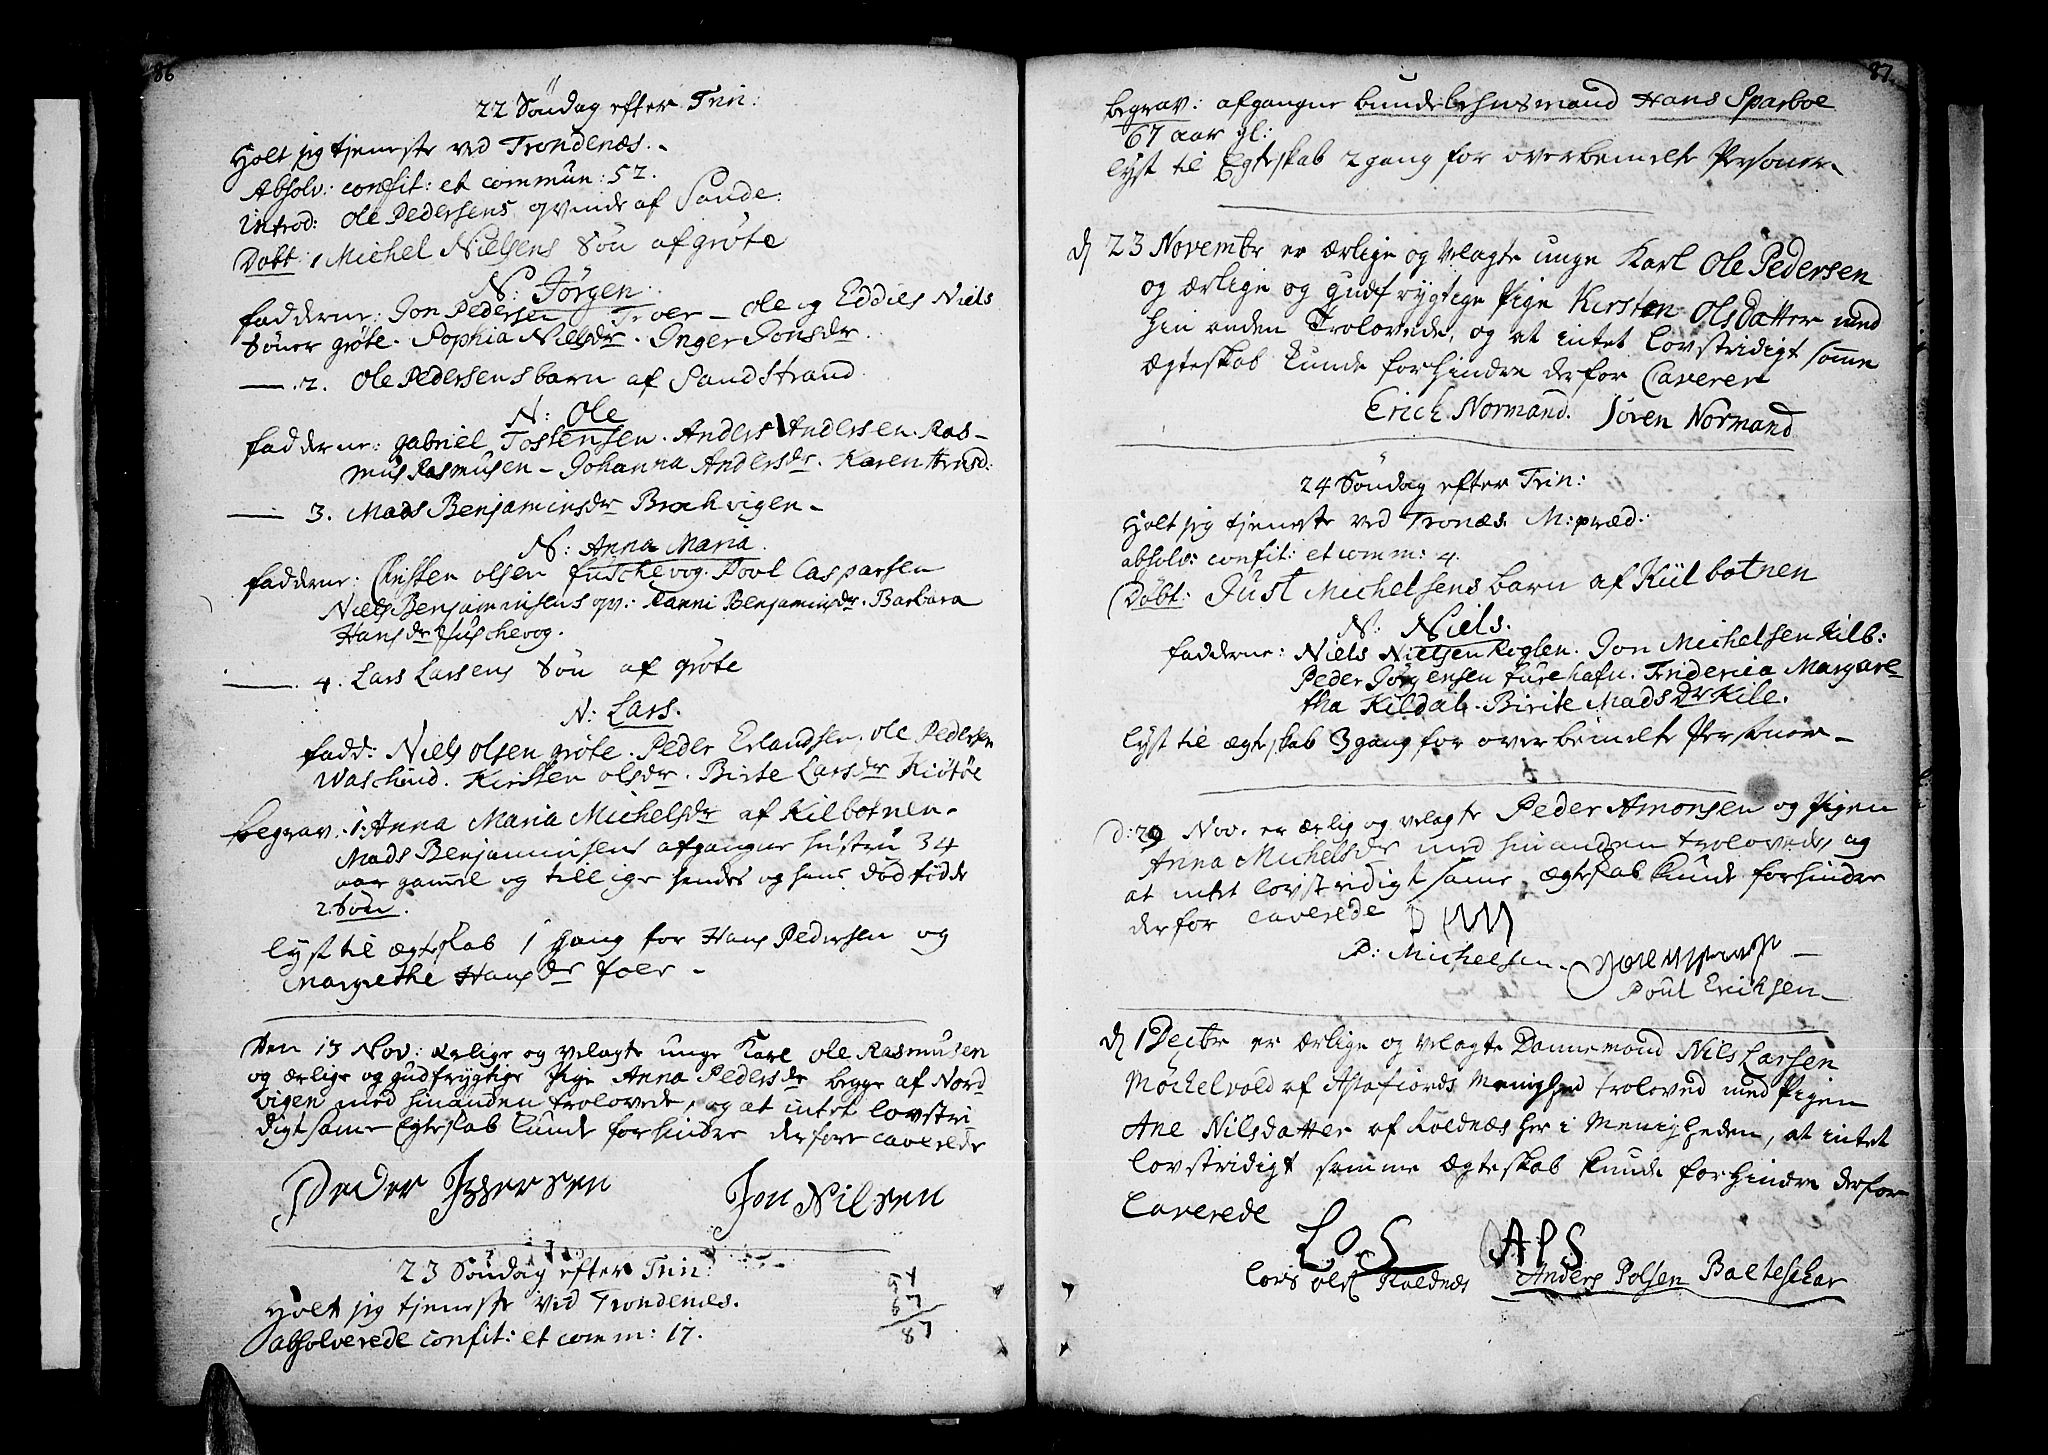 86
22 Söndag efter Trin:
Holt jeg tjeneste ved Trondenæs.
Absolv: confit: et commun: 52.
Introd: Ole Pedersens qvinde af Sande:
Döbt: 1 Michel Nielsens Sön af gröte
N: Jörgen.
fadderne: Jon Pedersen - Ole og Eddies Niels
Söner gröte. Sophia Nielsdr. Inger Jonsdr.
2. Ole Pedersens barn af Sandstrand
N: Ole
fadderne: Gabriel Tostensen. Anders Andersen. Ras-
mus Rasmusen - Johanna Andersdr. Karen
3. Mads Benjaminsdr Brochvigen -
N: Anna Maria.
fadderne: Christen Olsen fuschevog. Povl Casparsen
Niels Benjaminsens qv: Benjaminsdr. Barbara
Hansdr fuschevog.
4. Lars Larsens Sön af gröte
N: Lars.
fadd: Niels Olsen gröte. Peder Erlandsen. Ole Pedersen
Kirsten Olsdr. Birte Larsdr Kiötöe
Begrav. 1: Anna Maria Michelsdr af Kilbotnen.
Mads Benjaminsens afgangne hustru 34
aar gamel og tillige hendes og hans dödfödde
2. Sön.
lyst til ægteskab 1 gang for Hans Pedersen og
Margrethe Hansdr foer -
Den 13 Nov: ærlige og velagte unge Karl Ole Rasmusen
og ærlige og gudfrygtige Pige Anna Pedersdr begge af Nord
vigen med hinanden trolovede, og at intet lovstri
digt same Egteskab kunde forhindre derfore caverede
Peder Iversen Jon Nilsen
23 Söndag efter Trin:
Holt jeg tjeneste ved Trondenæs.
absolverede confit: et comm: 17.
67
87
87.
begrav: afgangne bundelehnsmand Hans Sparboe
67 aar gl:
lyst til Egteskab 2 gang for overbemelte Personer
d 23 Novembr er ærlige og velagte unge Karl Ole Pedersen
og ærlige og gudfrygtige Pige Kirsten Olsdatter med
hin anden Trolovede, og at intet lovstridigt samme
ægteskab kunde forhindre derfor Caverer
Erich Normand. Sören Normand
24 Söndag efter Trin:
Holt jeg tjeneste ved Tronæs. M: præd:
absolv: confit: et comm: 4.
Döbt: Just Michelsens barn af Kiilbotnen
N: Niels.
fadderne: Niels Nielsen Röglen. Jon Michelsen Kilb:
Peder Jörgensen furehafn. Fridericia Margare
tha Kildal. Birite Madsdr Kile.
lyst til ægteskab 3 gang for overbemelte Personer -
D: 29 Nov. er ærlig og velagte Peder Amonsen og Pigen
Anna Michelsdr med hinanden trolovede, og
at intet lovstridigt same ægteskab kunde forhindre
derfor caverede
P: Michelsen.
Poul Eriksen
d 1 Decbr er ærlige og velagte Dannemand Nils Larsen
Möckelvold af Astafiords Menighed troloved med Pigen
Ane Nilsdatter af Roldnæs her i Menigheden, at intet
lovstridigt samme ægteskab kunde forhindre derfor
Caverede
LOS APS
Lars Roldnæs Anders Polsen Balteschar